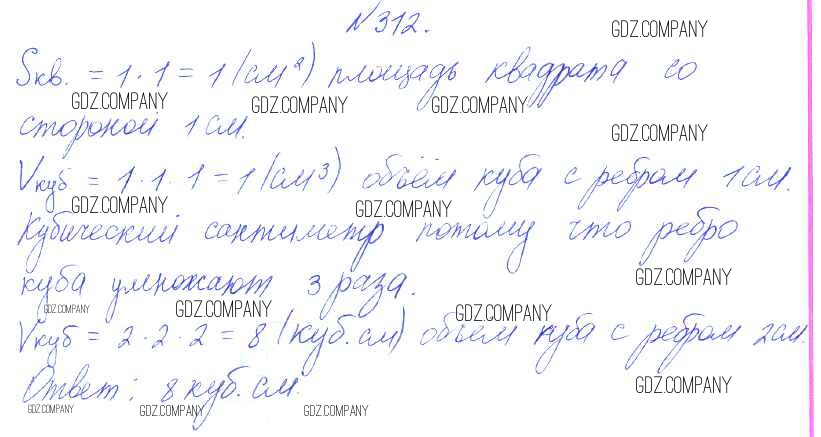 №312.
GDZ.COMPANY
Sкв. = 1·1 = 1 (см²) площадь квадрата со
GDZ.COMPANY GDZ.COMPANY GDZ.COMPANY
стороной 1 см.
GDZ.COMPANY
Vкуб = 1·1·1 = 1 (см³) объём куба с ребром 1см.
GDZ.COMPANY GDZ.COMPANY
Кубический сантиметр потому что ребро
куба умножают 3 раза.
GDZ.COMPANY
GDZ.COMPANY GDZ.COMPANY GDZ.COMPANY
Vкуб = 2·2·2 = 8 (куб.см) объём куба с ребром 2см.
Ответ: 8 куб.см.
GDZ.COMPANY
GDZ.COMPANY GDZ.COMPANY GDZ.COMPANY